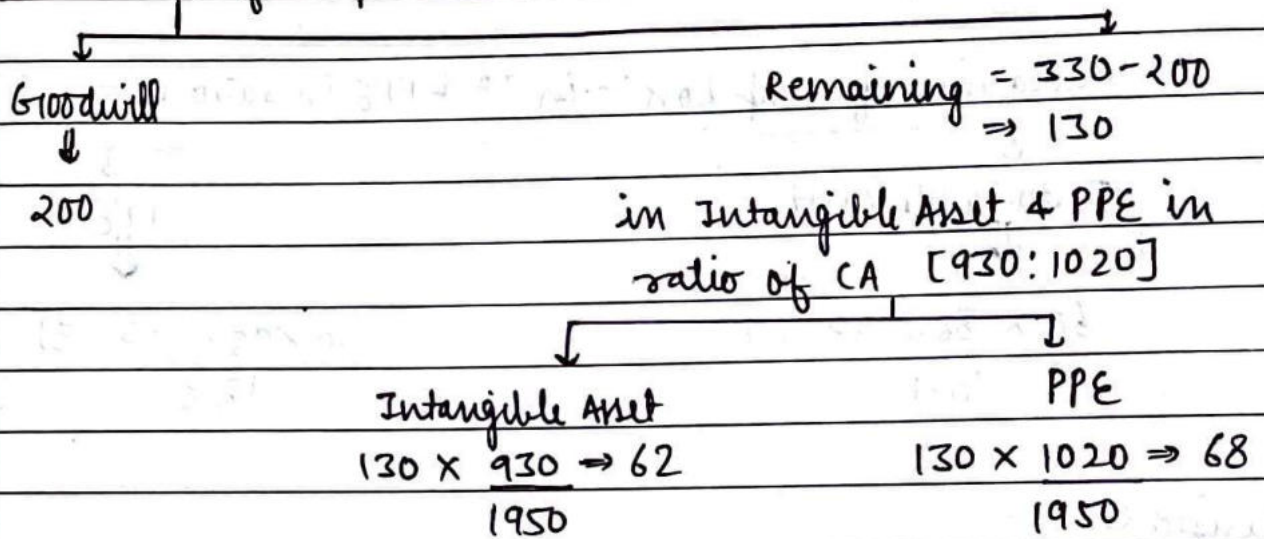 Goodwill
200
Remaining = 330-200
⇒ 130
in Intangible Asset & PPE in
ratio of CA [930:1020]
Intangible Asset
130 X 930 ⇒ 62
1950
PPE
130 X 1020 ⇒ 68
1950